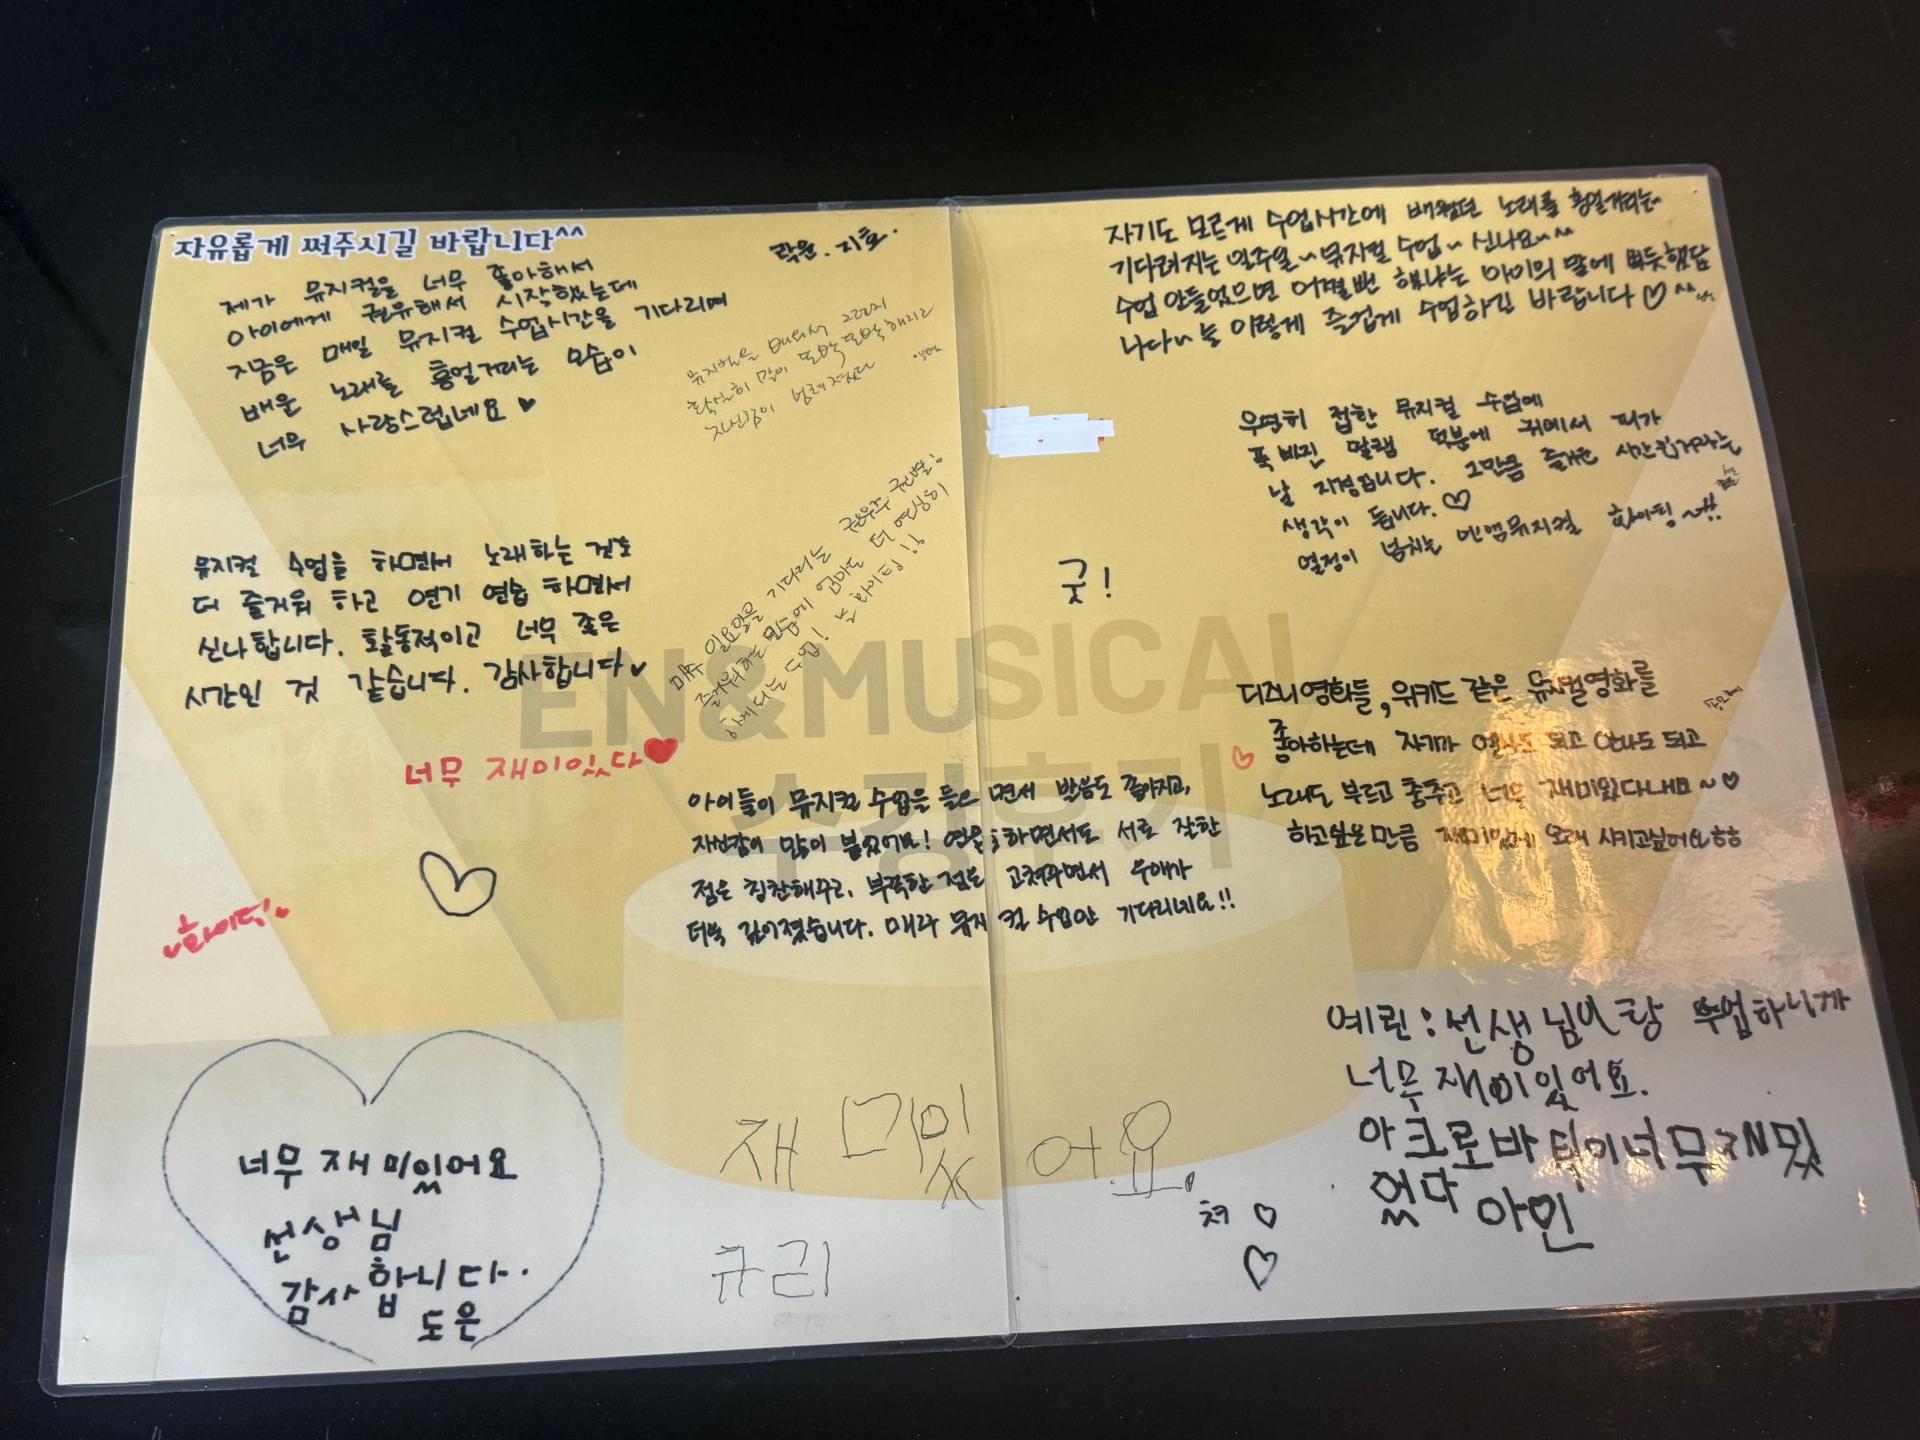 자유롭게 써주시길 바랍니다^^
락운. 지호.
제가 뮤지컬을 너무 좋아해서
아이에게 권유해서 시작했는데
지금은 매일 뮤지컬 수업시간을 기다리며
배운 노래를 흥얼거리는 모습이
너무 사랑스럽네요
뮤지컬을 배워서
확실히 많이 또박또박해지고
자신감이 넘쳐졌다
뮤지컬 수업을 하면서 노래하는 것도
더 즐거워 하고 연기 연습 하면서
신나합니다. 활동적이고 너무 좋은
시간인 것 같습니다. 감사합니다
매주 일요일을 기다리는
즐거워하는 모습에 엄마도 더 열심히
함께 다니는 수업! 화이팅!!
너무 재미있다
화이팅!
너무 재미있어요
선생님
감사합니다.
도은
자기도 모르게 수업시간에 배웠던 노래를 흥얼거리는
기다려지는 일주일~ 뮤지컬 수업~ 신나요~^^
수업 안들었으면 어쩔뻔 했냐는 아이의 말에 뿌듯했답
니다~ 늘 이렇게 즐겁게 수업하길 바랍니다 ^^
우연히 접한 뮤지컬 수업에
푹 빠진 딸램 덕분에 귀에서 피가
날 지경입니다. 그만큼 즐거운 시간인거라는
생각이 듭니다.
열정이 넘치는 엔앰뮤지컬 화이팅~!!
굿!
EN&MUSICAL
디즈니영화들, 위키드 같은 뮤지컬영화를
좋아하는데 자기가 엘사도 되고 안나도 되고
노래도 부르고 춤추고 너무 재미있다네요~
하고싶은만큼 재미있게 오래 시키고싶어요ㅎㅎ
아이들이 뮤지컬 수업을 들으면서 발음도 좋아지고,
자신감이 많이 붙었어요! 연습하면서도 서로 잘한
점은 칭찬해주고, 부족한 점은 고쳐주면서 우애가
더욱 깊어졌습니다. 매주 뮤지컬 수업만 기다리네요!!
예린: 선생님이랑 수업하니까
너무 재미있어요.
아크로바틱이너무재밌
었다
아인
재미있어요.
규리